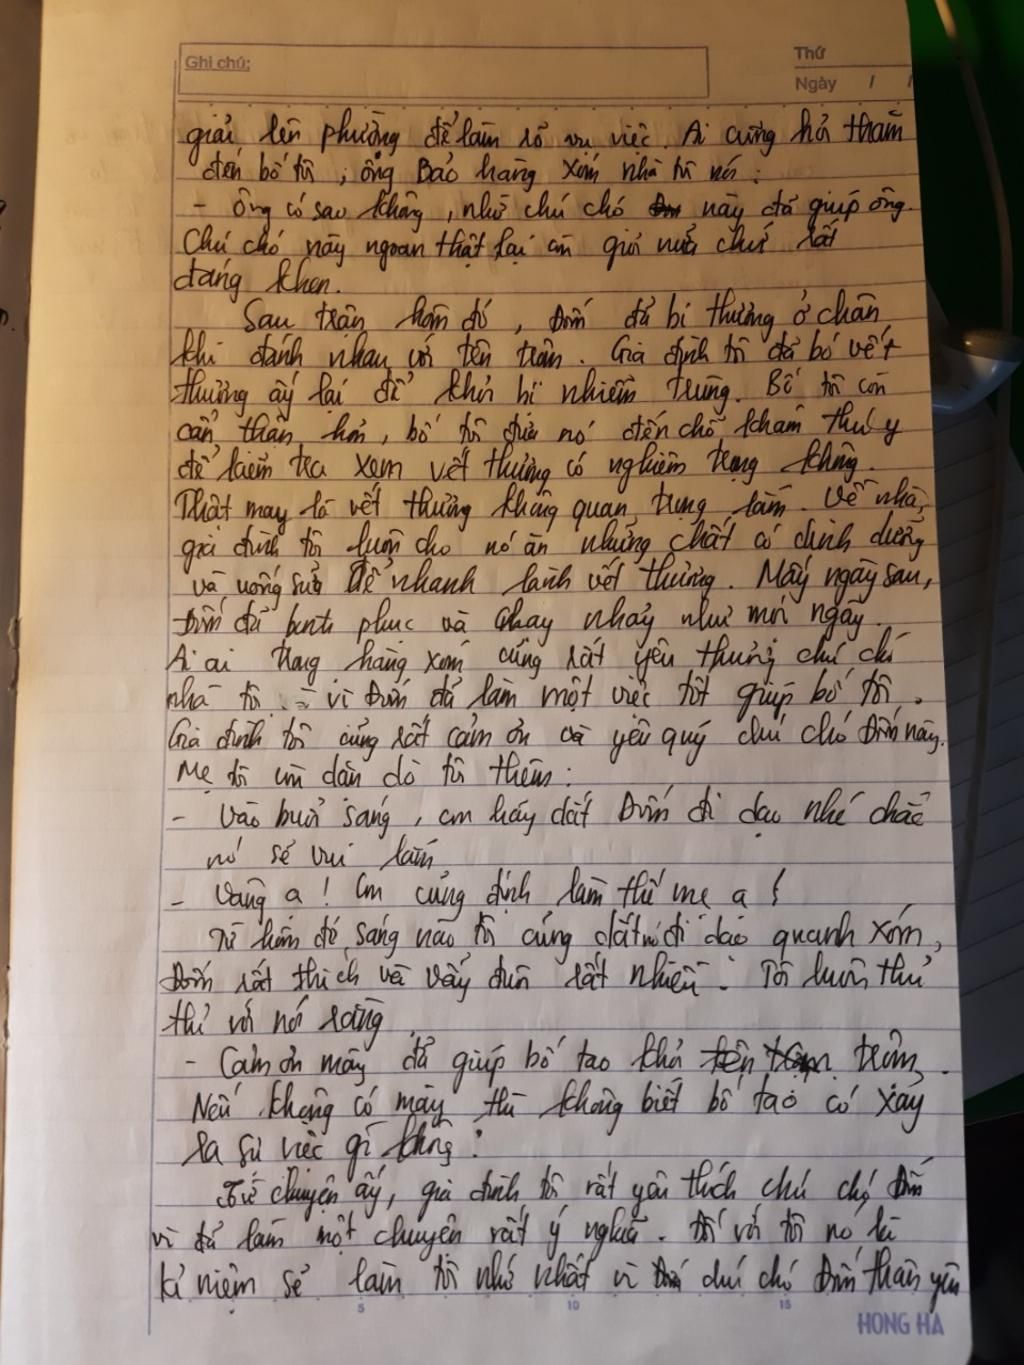 Ghi chú:
Thứ
Ngày / /
giải lên phường để làm rõ vụ việc. Ai cũng hỏi thăm
đến bố tôi, ông Bảo hàng xóm nhà tôi nói:
- Ông có sao không, nhờ chú chó này đã giúp ông.
Chú chó này ngoan thật lại còn giỏi nữa chứ rất
đáng khen.
Sau trận hôm đó, Đốm đã bị thương ở chân
khi đánh nhau với tên trộm. Gia đình tôi đã bó vết
thương ấy lại để khỏi bị nhiễm trùng. Bố tôi còn
cẩn thận hơn, bố tôi đưa nó đến chỗ khám thú y
để kiểm tra xem vết thương có nghiêm trọng không.
Thật may là vết thương không quan trọng lắm. Về nhà,
gia đình tôi luôn cho nó ăn những chất có dinh dưỡng
và uống sữa để nhanh lành vết thương. Mấy ngày sau,
Đốm đã bình phục và chạy nhảy như mọi ngày.
Ai ai trong hàng xóm cũng rất yêu thương chú chó
nhà tôi vì Đốm đã làm một việc tốt giúp bố tôi.
Gia đình tôi cũng rất cảm ơn và yêu quý chú chó Đốm này.
Mẹ tôi còn dặn dò tôi thêm:
- Vào buổi sáng, con hãy dắt Đốm đi dạo nhé chắc
nó sẽ vui lắm
- Vâng ạ! Con cũng định làm thế mẹ ạ!
Từ hôm đó, sáng nào tôi cũng dắt nó đi dạo quanh xóm,
Đốm rất thích và vẫy đuôi rất nhiều. Tôi luôn thủ
thỉ với nó rằng
- Cảm ơn mày đã giúp bố tao khỏi tên trộm.
Nếu không có mày thì không biết bố tao có xảy
ra sự việc gì không.
Từ chuyện ấy, gia đình tôi rất yêu thích chú chó Đốm
vì đã làm một chuyện rất ý nghĩa. Đối với tôi nó là
kỉ niệm sẽ làm tôi nhớ nhất vì chú chó Đốm thân yêu
5 10 15
HONG HA